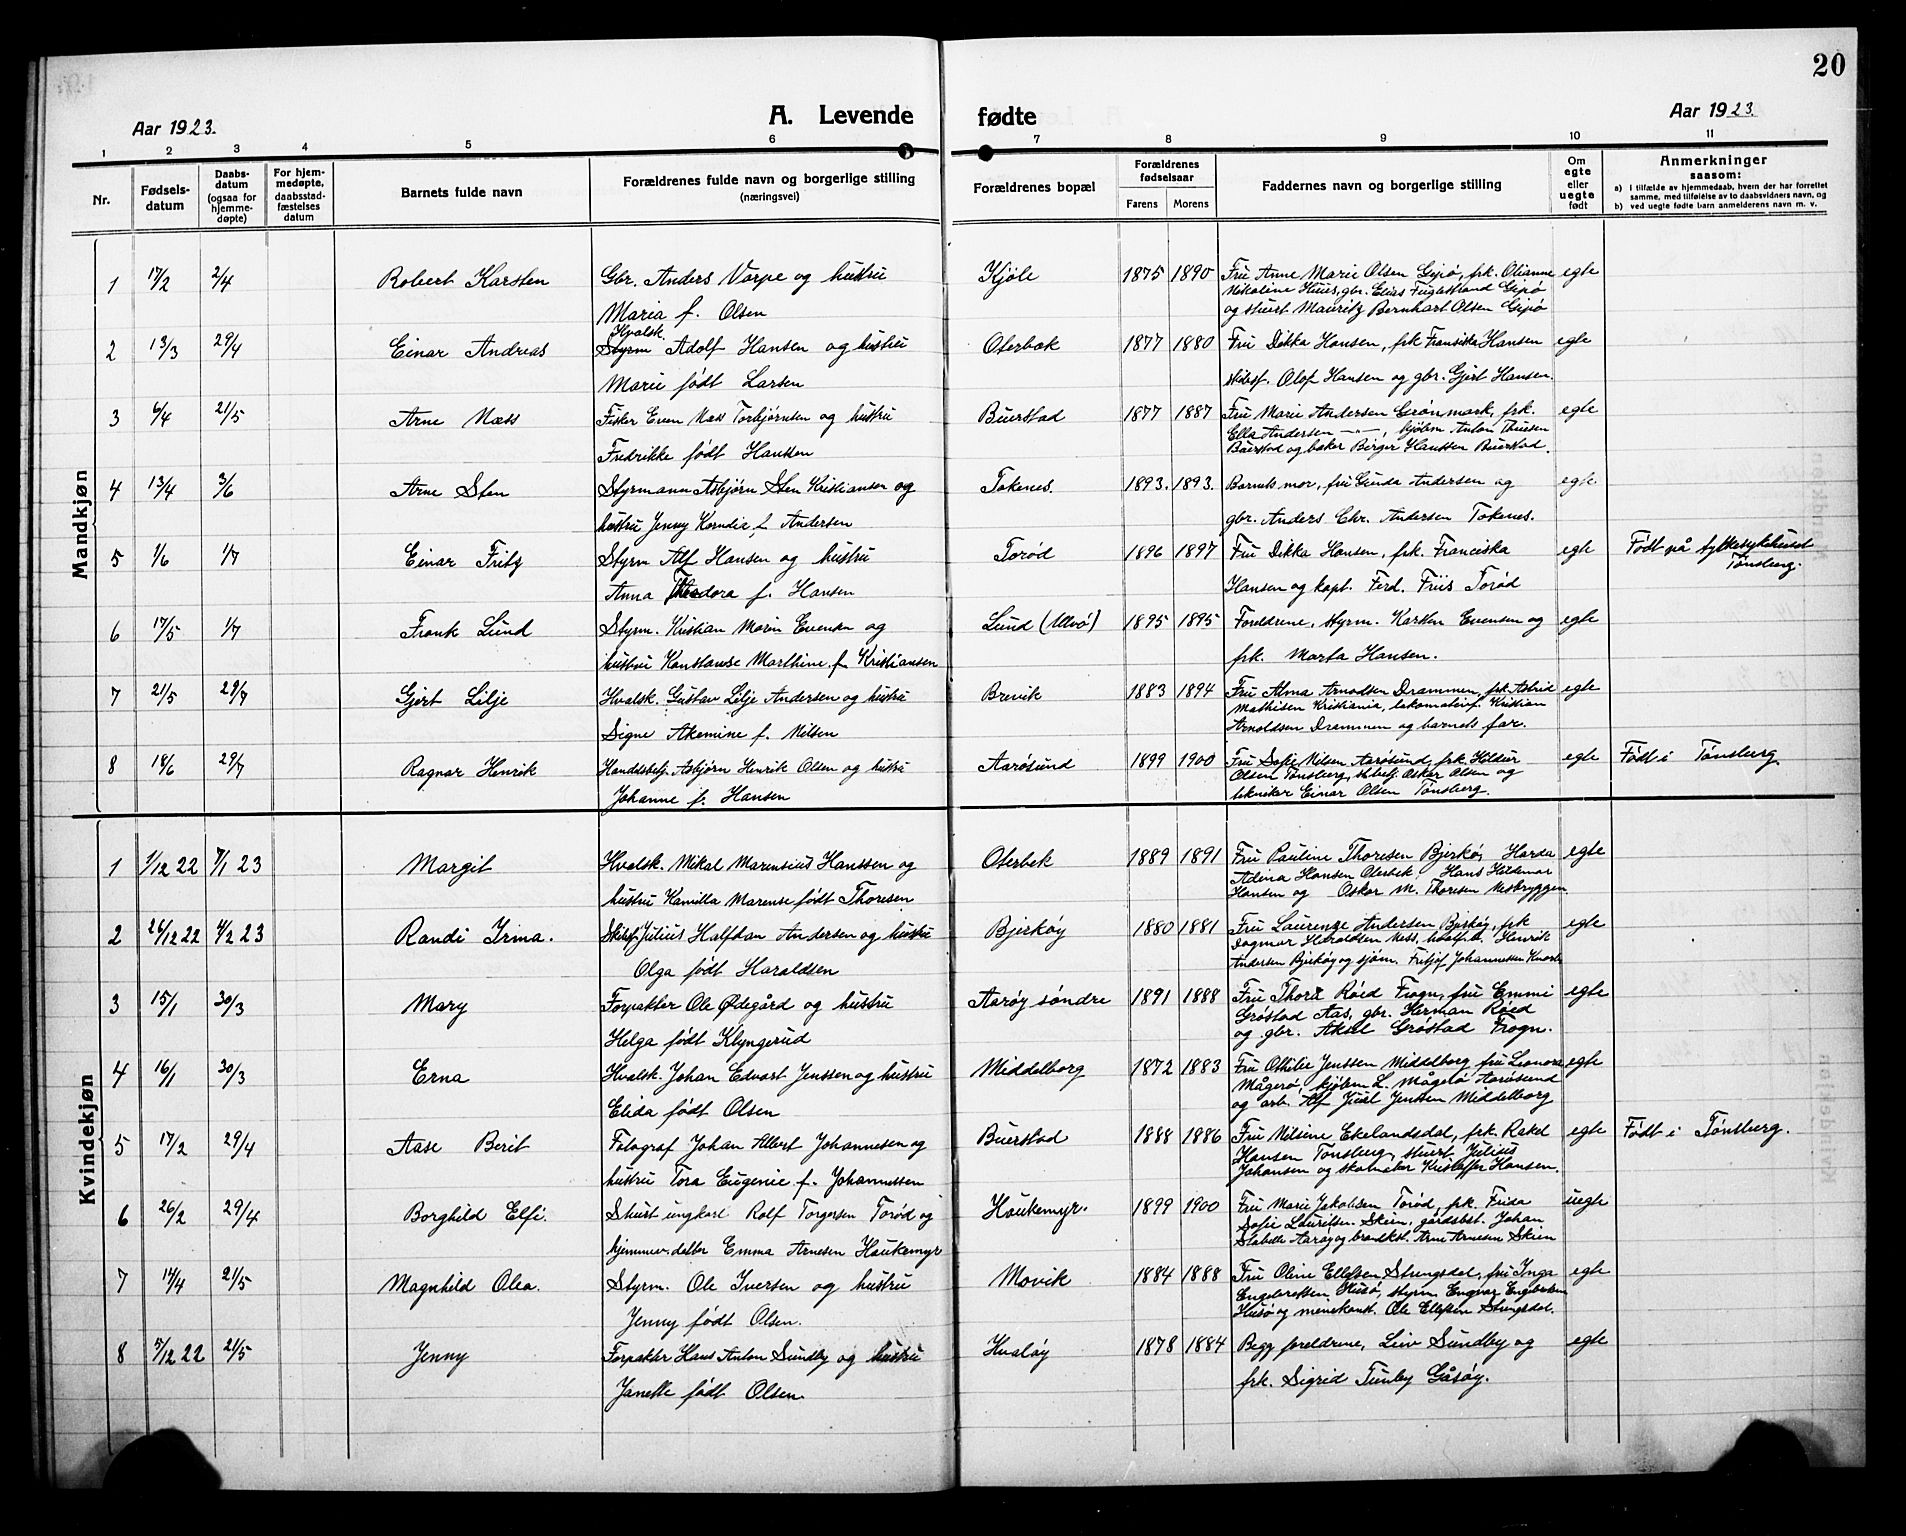 20
Aar 1923.
A. Levende fødte
Aar 1923.
1 2 3 4 5 6 7 8 9 10 11
Nr.
Fødsels-
datum
Daabs-
datum
(ogsaa for
hjemme-
døpte)
For hjem-
medøpte,
daabsstad-
fæstelses
datum
Barnets fulde navn
Forældrenes fulde navn og borgerlige stilling
(næringsvei)
Forældrenes bopæl
Forældrenes
fødselsaar
Farens Morens
Faddernes navn og borgerlige stilling
Om
egte
eller
uegte
født
Anmerkninger
saasom:
a) i tilfælde av hjemmedaab, hvem der har forrettet
samme, med tilføielse av to daabsvidners navn, og
b) ved uegte fødte barn anmelderens navn m. v.
Mandkjøn
1 17/2 2/4 Robert Karsten Gbr. Anders Vorpe og hustru
Maria f. Olsen
Kjøle 1875 1890 Fru Anne Marie Olsen Gipø, frk. Olianne
Nikoline Huus, gbr. Elias Fuglestrand Gipø
og stuert Mauritz Bernhart Olsen Gipø
egte
2 13/3 29/4 Einar Andreas Hvalsk.
Styrm Adolf Hansen og hustru
Marie født Larsen
Oterbæk 1877 1880 Fru Dikka Hansen, frk Fransiska Hansen
skibsf. Olaf Hansen og gbr. Gjert Hansen.
egte
3 6/4 21/5 Arne Næss Fisker Even Næss Torbjørnsen og hustru
Fredrikke født Hansen
Buerstad 1877 1887 Fru Marie Andersen Grønmark, frk.
Ella Andersen —"—, kjøbm Anton Thuesen
Buerstad og baker Birger Hanssen Buerstad.
egte
4 13/4 3/6 Arne Sten Styrmann Asbjørn Sten Kristiansen og
hustru Jenny Korndia f. Andersen
Tokenes. 1893. 1893. Barnets mor, fru Ginda Andersen og
gbr. Anders Chr. Andersen Tokenes.
egte
5 1/6 1/7 Einar Fritz Styrm Alf Hansen og hustru
Anna Theodora f. Hansen
Torød 1896 1897 Fru Dikka Hansen, frk. Franciska
Hansen og kapt. Ferd. Friis Torød
egte Født på fylkesykehuset
Tønsberg.
6 17/5 1/7 Frank Lund Styrm. Kristian Marin Evensen og
hustru Konstanse Marthine f. Kristiansen
Lund (Ulvø) 1895 1895 Foreldrene, styrm. Karsten Evensen og
frk. Marta Hansen.
egte
7 21/5 29/7 Gjert Lilje Hvalsk. Gustav Lilje Andersen og hustru
Signe Akemine f. Nilsen
Brevik 1883 1894 Fru Alma Arnodsen Drammen, frk Astrid
Mathisen Kristiania, lokomotivf. Kristian
Arnoldsen Drammen og barnets far.
egte
8 18/6 29/7 Ragnar Henrik Handelsbetj. Asbjørn Henrik Olsen og hustru
Johanne f. Hansen
Aarøsund 1899 1900 Fru Sofie Nilsen Aarøsund, frk. Hildur
Olsen Tønsberg, Asker Olsen og
tekniker Einar Olsen Tønsberg.
egte Født i Tønsberg
Kvindekjøn
1 1/12 22 7/1 23 Margit Hvalsk. Mikal Marensius Hanssen og
hustru Kamilla Marense født Thoresen
Oterbek 1889 1891 Fru Pauline Thoresen Bjerkø, Harda
Adina Hansen Oterbek, Hans Hildemar
Hansen og Oskar M. Thoresen Nesbryggen
egte
2 26/12 22 4/2 23 Randi Irma. Skibsf. Julius Halfdan Andersen og hustru
Olga født Haraldsen
Bjerkøy 1880 1881 Fru Laurenze Andersen Bjerkøy, frk
Dagmar Haraldsen Ness, hvalf. Henrik
Andersen Bjerkøy og sjøm. Fritjof Johannessen
egte
3 15/1 30/3 Mary Forpakter Ole Ødegård og hustru
Helga født Klyngerud
Aarøy søndre 1891 1888 Fru Thora Røed Frogn, fru Emmi
Grøstad Aas, gbr. Herman Røed
og gbr. Aksel Grøstad Frogn.
egte
4 16/1 30/3 Erna Hvalsk. Johan Edvart Jenssen og hustru
Elida født Olsen
Middelborg 1872 1883 Fru Othilie Jenssen Middelborg fru Leonora
Mågerø, kjøbm L. Mågerø Aarøsund
og arb. Alf Juul Jenssen Middelborg
egte
5 17/2 29/4 Aase Berit Fotograf Johan Albert Johannesen og
hustru Tora Eugenie f. Johannessen
Buerstad 1888 1886 Fru Nilsine Ekelandsdal, frk. Rakel
Hansen Tønsberg, stuert Julius
Johansen og skotneker Kristoffer Hansen.
egte Født i Tønsberg.
6 26/2 29/4 Borghild Elfi. Stuert ungkarl Rolf Torgersen Torød og
hjemmev. datter Emma Arnesen Haukemyr
Haukemyr. 1899 1900 Fru Marie Jakobsen Torød, frk. Frida
Sofie Lauritsen Skien, gårdsbst. Johan
Stabelle Aarøy og brandkst. Arne Arnesen Skien
uegte
7 14/4 21/5 Magnhild Olea. Styrm. Ole Iversen og hustru
Jenny født Olsen.
Movik 1884 1888 Fru Oline Ellefsen Strengsdal, fru Inga
Engebretsen Husø, styrm. Engvar Engebretsen
Husø og minekant. Ole Ellefsen Strengsdal.
egte
8 5/12 22 21/5 Jenny Forpakter Hans Anton Sundby og hustru
Janette født Olsen.
Hvaløy 1878 1884 Begg foreldrene, Liv Sundby og
frk. Sigrid Tunby Gåsøy.
egte